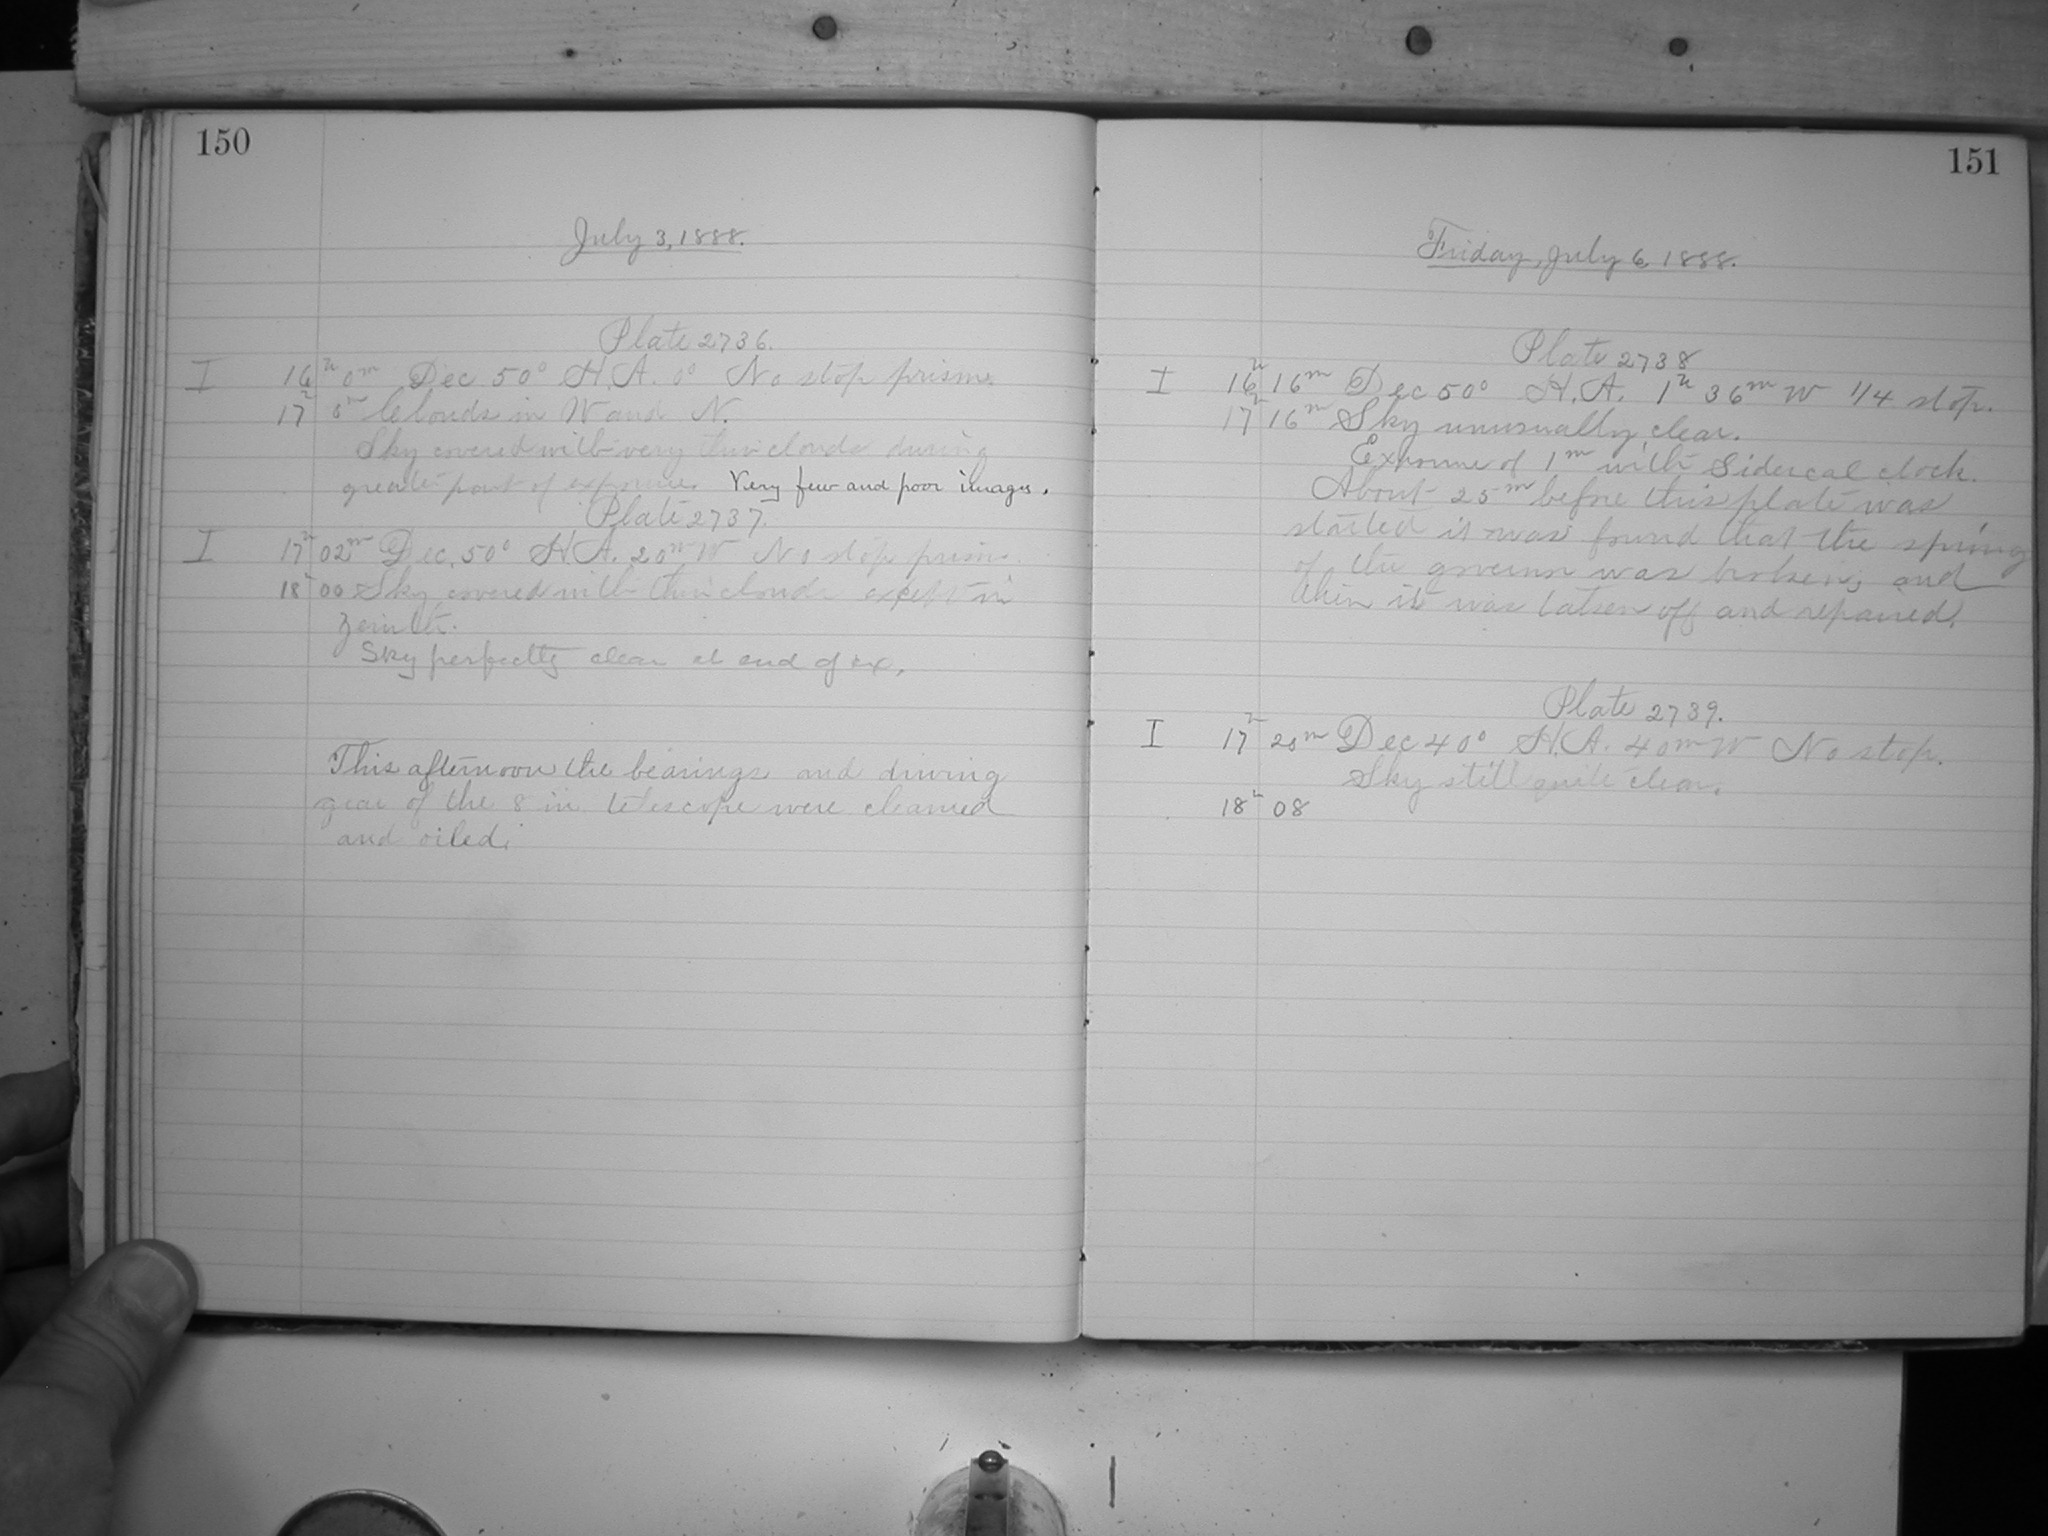 150
July 3, 1888.
Plate 2736.
I 16h 0m Dec 50° H.A. 0° No stop prism.
17h 0m Clouds in W and N.
Sky covered with very thin clouds during
greater part of exposure. Very few and poor images.
Plate 2737.
I 17h 02m Dec. 50° H.A. 20m W No stop prism.
18h 00 Sky covered with thin clouds except in
zenith.
Sky perfectly clear at end of ex.
This afternoon the bearings and driving
gear of the 8 in. telescope were cleaned
and oiled.
151
Friday, July 6, 1888.
Plate 2738
I 16h 16m Dec 50° H.A. 1h 36m W 1/4 stop.
17h 16m Sky unusually clear.
Exposure of 1m with Sidereal clock.
About 25m before this plate was
started it was found that the spring
of the governor was broken, and
then it was taken off and repaired.
Plate 2739.
I 17h 20m Dec 40° H.A. 40m W No stop.
Sky still quite clear.
18h 08